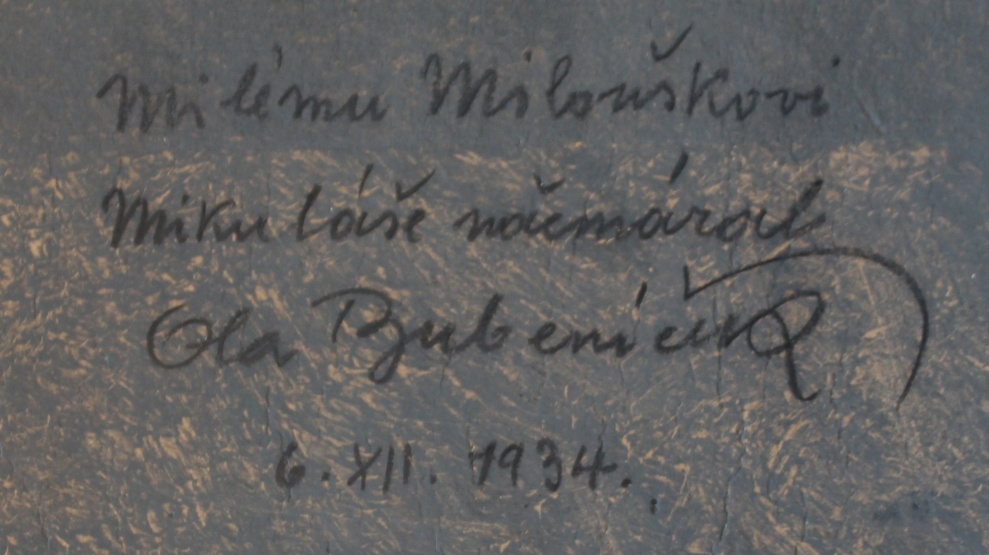 Milému Milouškovi
Mikuláše načmáral
Ola Bubeníček
6. XII. 1934.